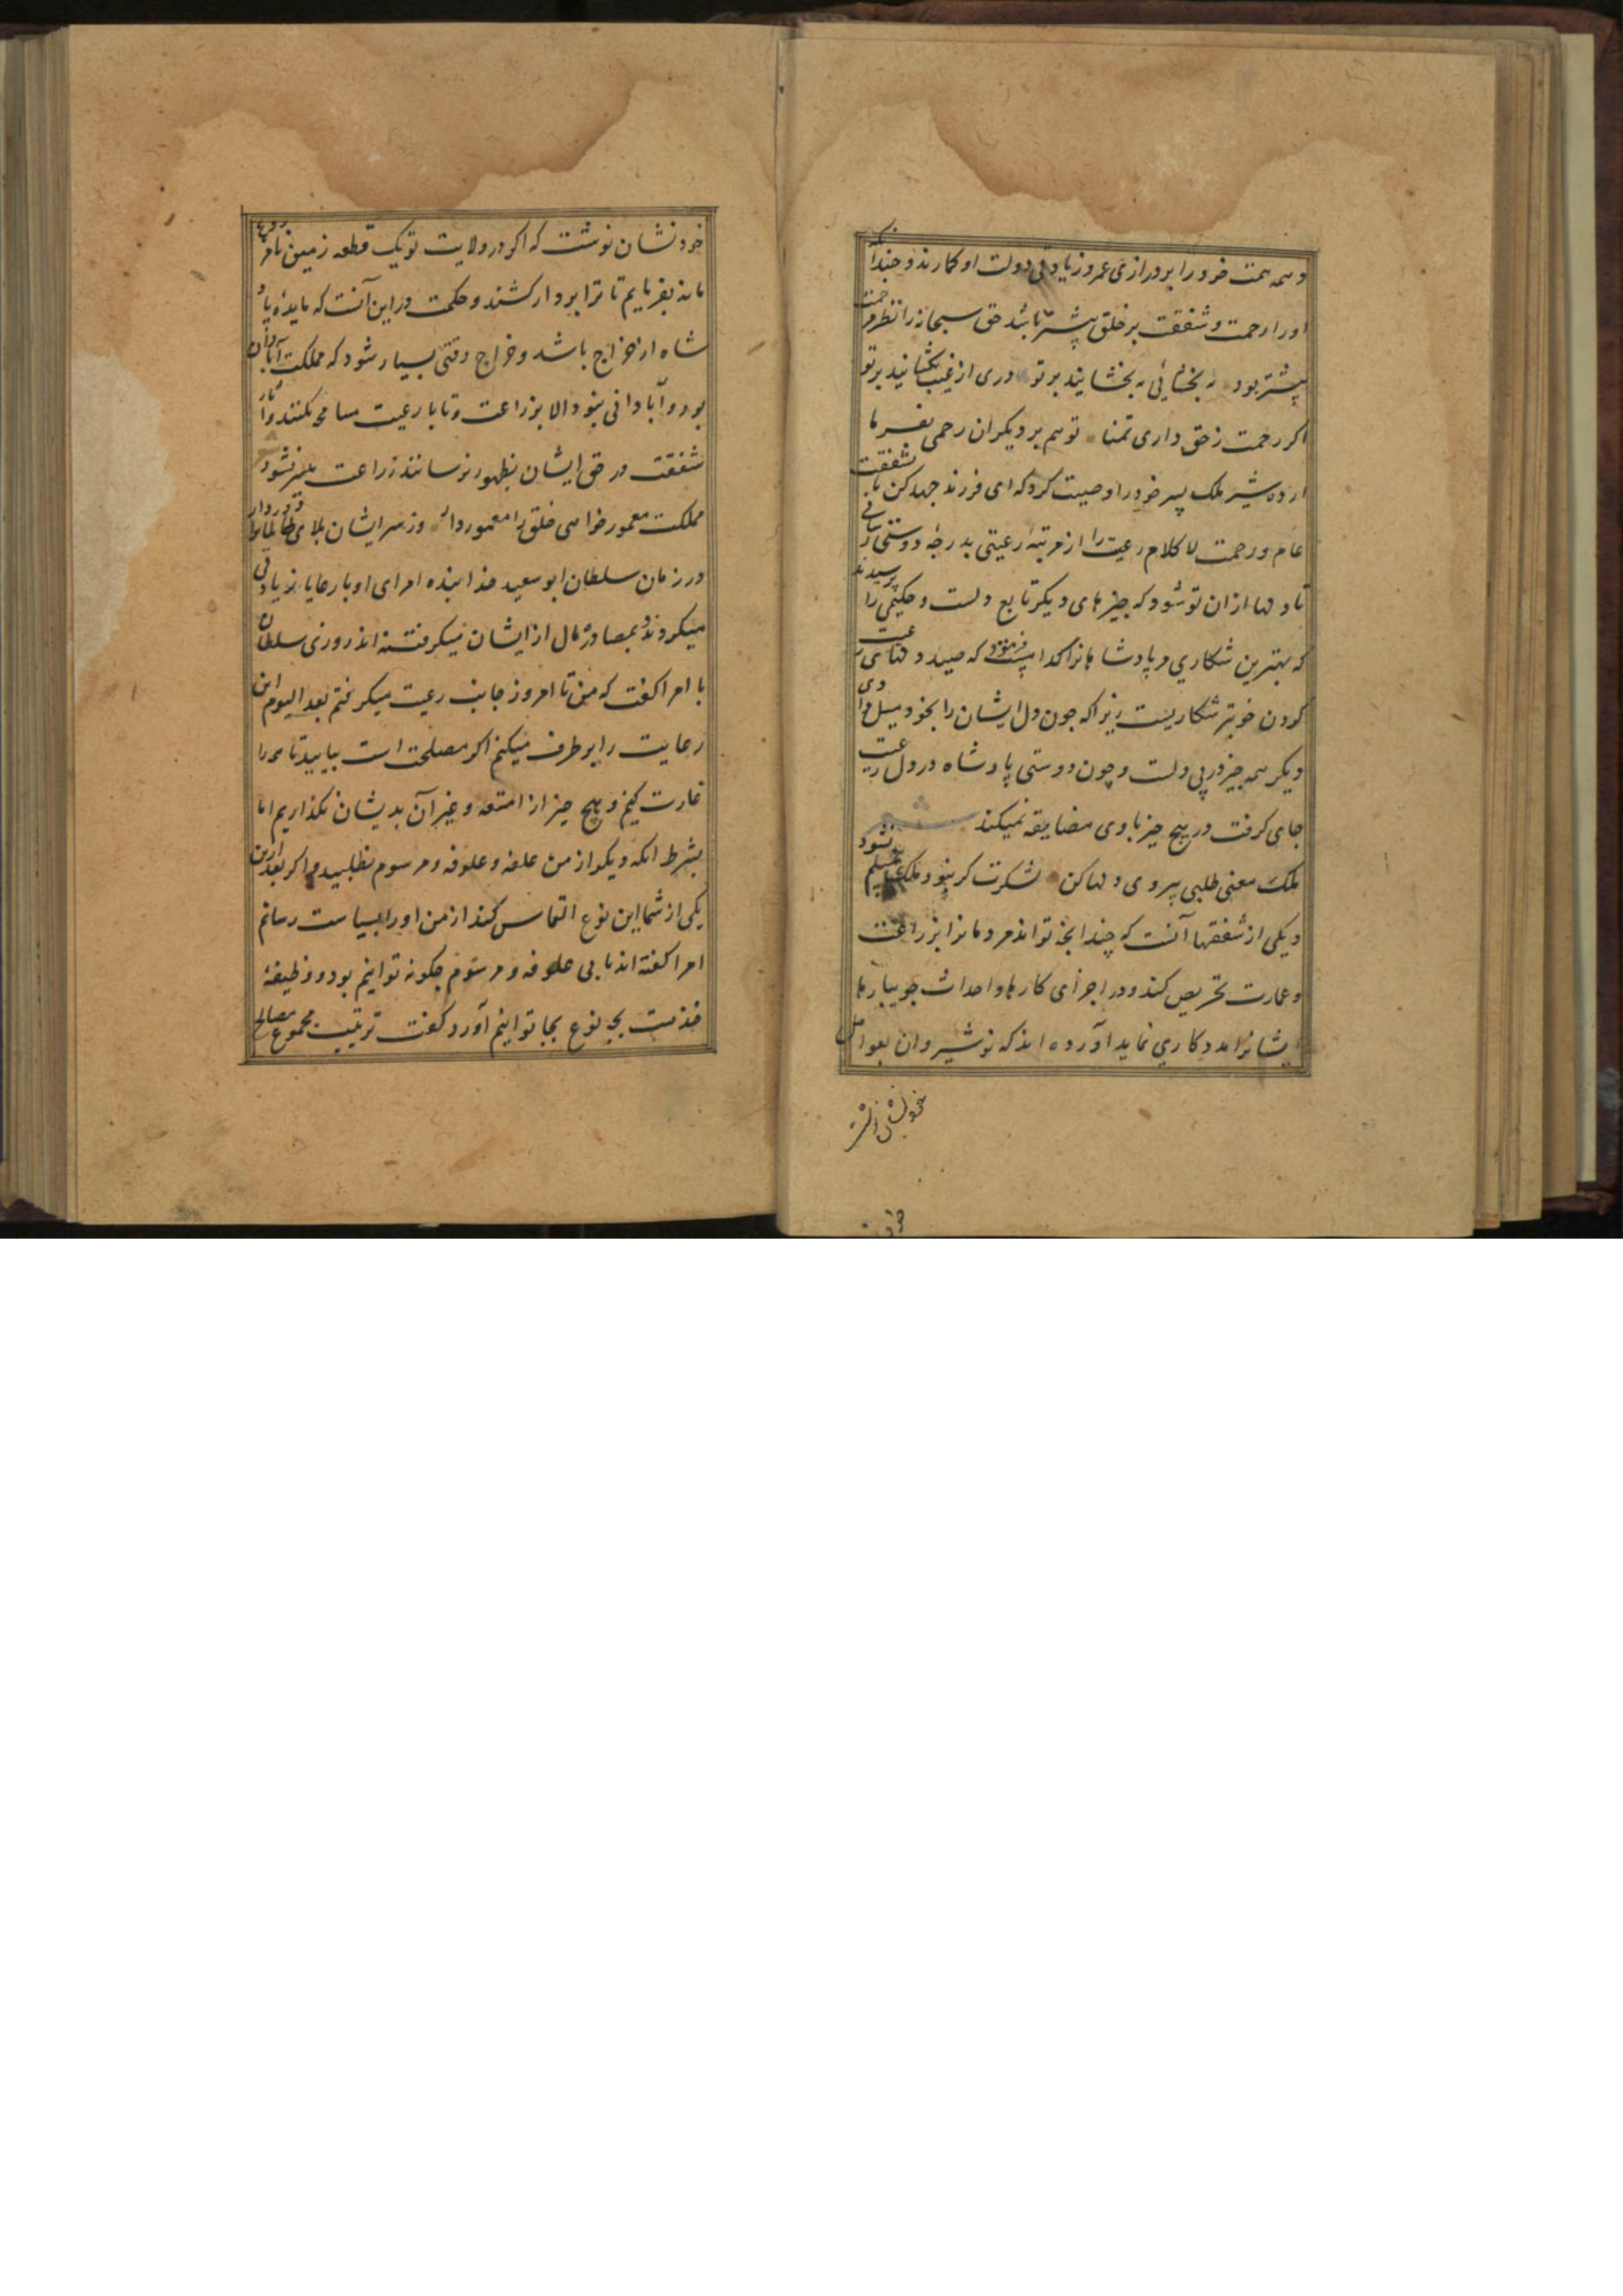 و همه همت خود را بر درازی عمر و زیادتی دولت او کمارند و چندانکه
او را رحمت و شفقت بر خلق بیشتر باشد حق سبحانه را نظر مرحمت
بیشتر بود ببخشائی به بخشایند بر تو دری از غیب بکشایند بر تو
اکر رحمت ز حق داری تمنا تو هم بر دیکران رحمی بفرما
اردشیر ملک پسر خود را وصیت کرد که ای فرزند جهد کن تا بشفقت
عام و رحمت لا کلام رعیت را از مرتبهٔ رعیتی بدرجهٔ دوستی رسانی
تا دلها از ان تو شود که چیزهای دیکر تابع دلست و حکیمی را پرسیدند
که بهترین شکاری مر پادشاهانرا کدامست فرمود که صید دلهای رعیت
کردن خوبتر شکاریست زیرا که چون دل ایشان را بخود میل دادی
دیکر همه چیز در پی دلست و چون دوستی پادشاه در دل رعیت
جای کرفت در هیچ چیز با وی مضایقه نمیکند
ملک معنی طلبی پیروی دلها کن لشکرت کر نبود ملک مسلم نشود
و یکی از شفقتها آنست که چندانچه تواند مردمانرا بزراعت
و عمارت تحریص کند و در اجرای کارها و احداث جویبارها
ایشانرا مددکاری نماید آورده اند که نوشیروان بعوامل
خود نشان نوشت که اکر در ولایت تو یک قطعه زمین نامزروع
ماند بفرمایم تا ترا بردار کشند و حکمت در این آنست که مایدهٔ پاد
شاه از خراج باشد و خراج وقتی بسیار شود که مملکت آبادان
بود و آبادانی نبود الا بزراعت و تا با رعیت مسامحه نکنند و آثار
شفقت در حق ایشان بظهور نرسانند زراعت میسر نشود
مملکت معمور خواهی خلق را معمور دار وز سر ایشان بلای ظالمان را دور دار
در زمان سلطان ابو سعید خدابنده امرای او با رعایا زیادتی
میکردند و بمصادره مال از ایشان میکرفتند روزی سلطان
با امرا کفت که من تا امروز جانب رعیت میکرفتم بعد الیوم این
رعایت را بر طرف میکنم اکر مصلحت است بیایید تا همه را
غارت کنیم و هیچ چیز از امتعه و غیر آن بدیشان نکذاریم اما
بشرط انکه دیکر از من علفه و علوفه و مرسوم نطلبید و اکر بعد ازین
یکی از شما این نوع التماس کند از من او را بسیاست رسانم
امرا کفته اند ما بی علوفه و مرسوم چکونه توانیم بود و وظیفهٔ
خدمت بچه نوع بجا توانیم آورد کفت ترتیب مجموع مصالح